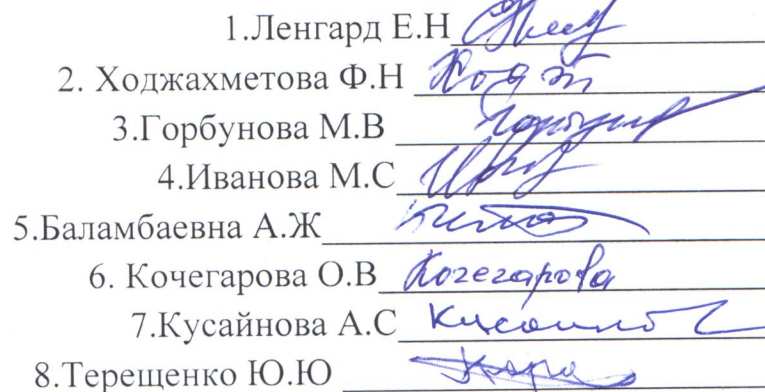 1.Ленгард Е.Н
2. Ходжахметова Ф.Н
3.Горбунова М.В
4.Иванова М.С
5.Баламбаевна А.Ж
6. Кочегарова О.В Кочегарова
7.Кусайнова А.С
8.Терещенко Ю.Ю